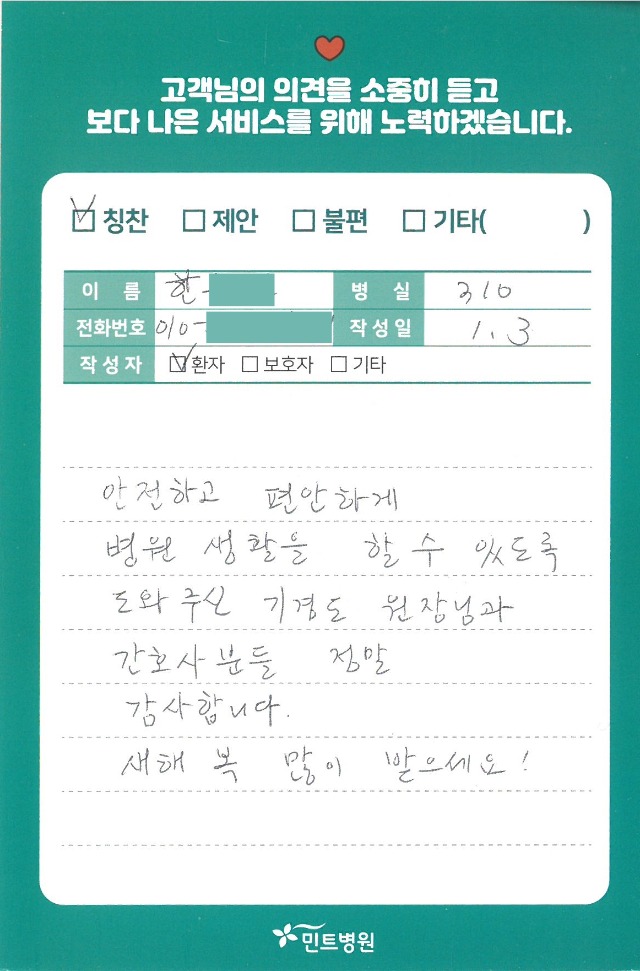 고객님의 의견을 소중히 듣고
보다 나은 서비스를 위해 노력하겠습니다.
칭찬 제안 불편 기타( )
이 름 한 병 실 310
전화번호 010- 작성일 1. 3
작성자 환자 보호자 기타
안전하고 편안하게
병원 생활을 할 수 있도록
도와주신 기경도 원장님과
간호사분들 정말
감사합니다.
새해 복 많이 받으세요!
민트병원